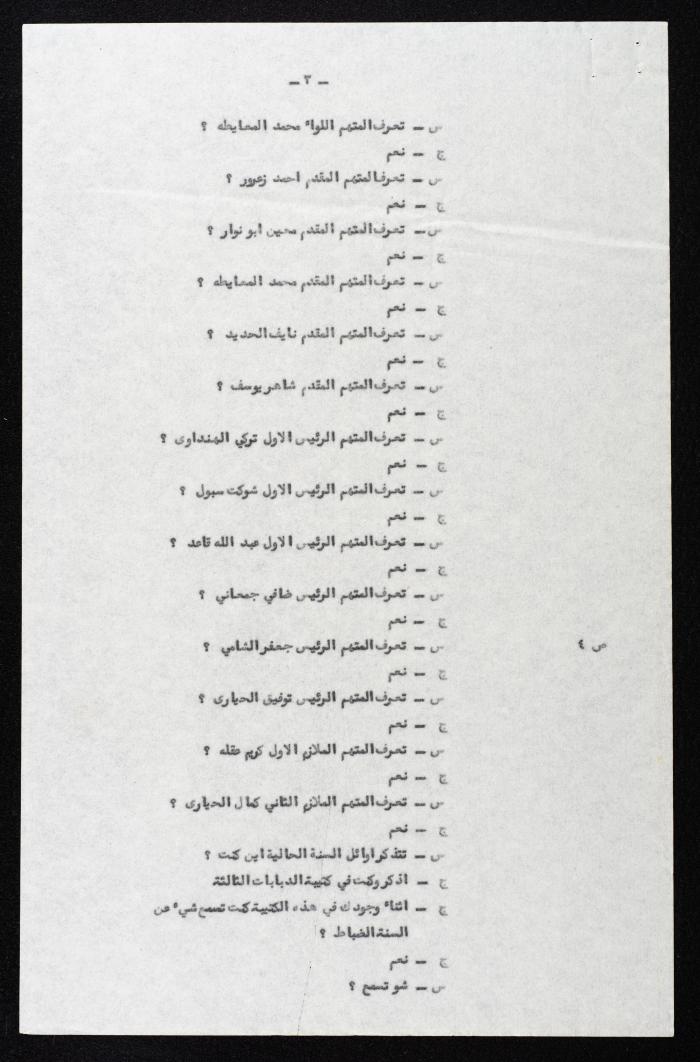 ـ ٣ ـ
س ـ تعرف المتهم اللواء محمد المعايطه ؟
ج ـ نعم
س ـ تعرف المتهم المقدم احمد زعرور ؟
ج ـ نعم
س ـ تعرف المتهم المقدم معين ابو نوار ؟
ج ـ نعم
س ـ تعرف المتهم المقدم محمد المعايطه ؟
ج ـ نعم
س ـ تعرف المتهم المقدم نايف الحديد ؟
ج ـ نعم
س ـ تعرف المتهم المقدم شاهر يوسف ؟
ج ـ نعم
س ـ تعرف المتهم الرئيس الاول تركي الهنداوى ؟
ج ـ نعم
س ـ تعرف المتهم الرئيس الاول شوكت سبول ؟
ج ـ نعم
س ـ تعرف المتهم الرئيس الاول عبد الله قاعد ؟
ج ـ نعم
س ـ تعرف المتهم الرئيس ضافي جمعاني ؟
ج ـ نعم
س ـ تعرف المتهم الرئيس جعفر الشامي ؟
ص ٤
ج ـ نعم
س ـ تعرف المتهم الرئيس توفيق الحيارى ؟
ج ـ نعم
س ـ تعرف المتهم الملازم الاول كريم عقله ؟
ج ـ نعم
س ـ تعرف المتهم الملازم الثاني كمال الحيارى ؟
ج ـ نعم
س ـ تتذكر اوائل السنة الحالية اين كنت ؟
ج ـ اذكر وكنت في كتيبة الدبابات الثالثة
ج ـ اثناء وجودك في هذه الكتيبة كنت تسمع شيء عن
السنة الضباط ؟
ج ـ نعم
س ـ شو تسمع ؟